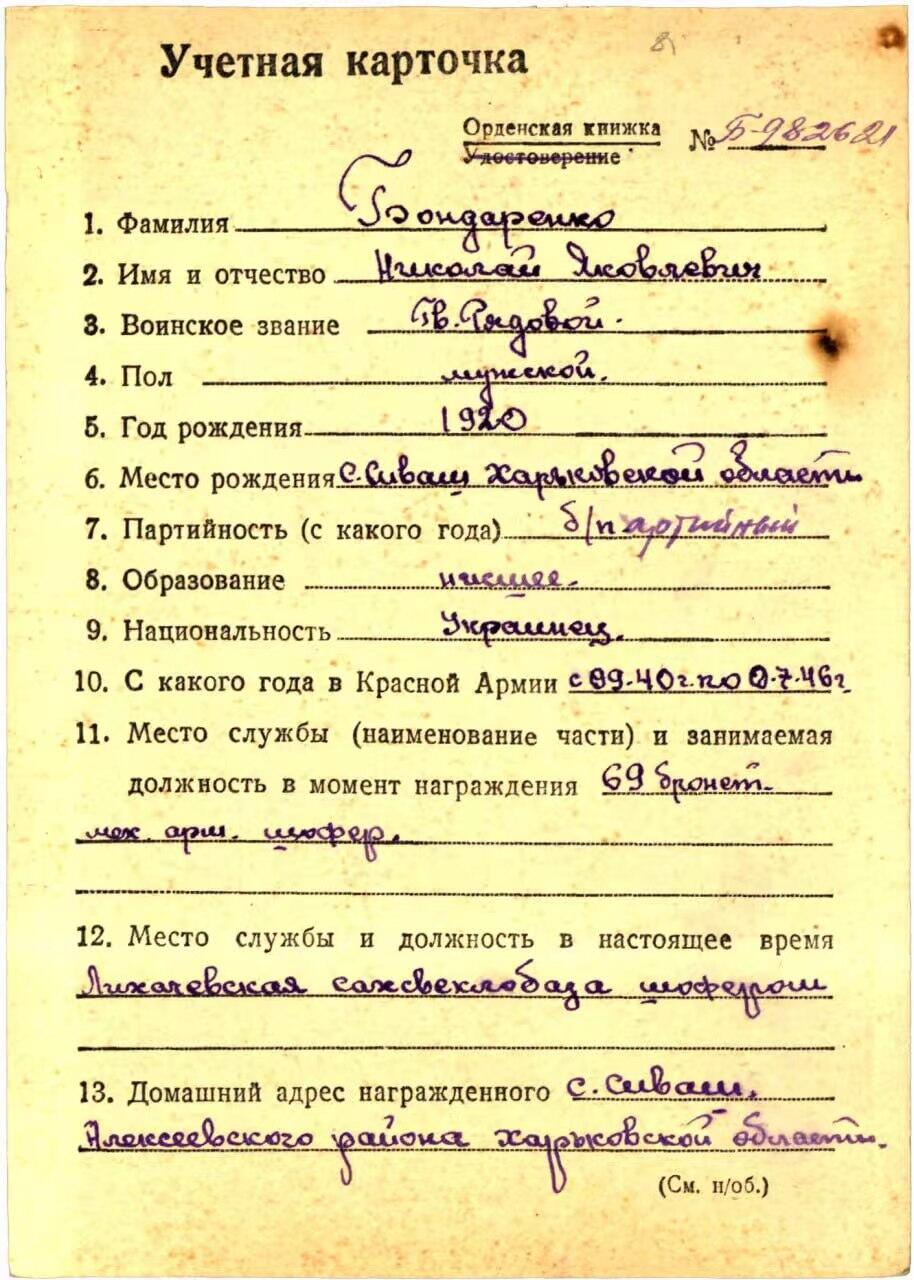 Учетная карточка
Орденская книжка
Удостоверение
№ Б-982621
1. Фамилия Бондаренко
2. Имя и отчество Николай Яковлевич
3. Воинское звание Гв. Рядовой.
4. Пол мужской.
5. Год рождения 1920
6. Место рождения С. Сиваш Харьковской области
7. Партийность (с какого года) б/партийный
8. Образование низшее.
9. Национальность Украинец.
10. С какого года в Красной Армии с 09.40 г. по
11. Место службы (наименование части) и занимаемая
должность в момент награждения 69 бронет.
мех. арт. шофер.
12. Место службы и должность в настоящее время
Лихачевская сахсвеклобаза шофером
13. Домашний адрес награжденного с. Сиваш,
Алексеевского района Харьковской области.
(См. н/об.)